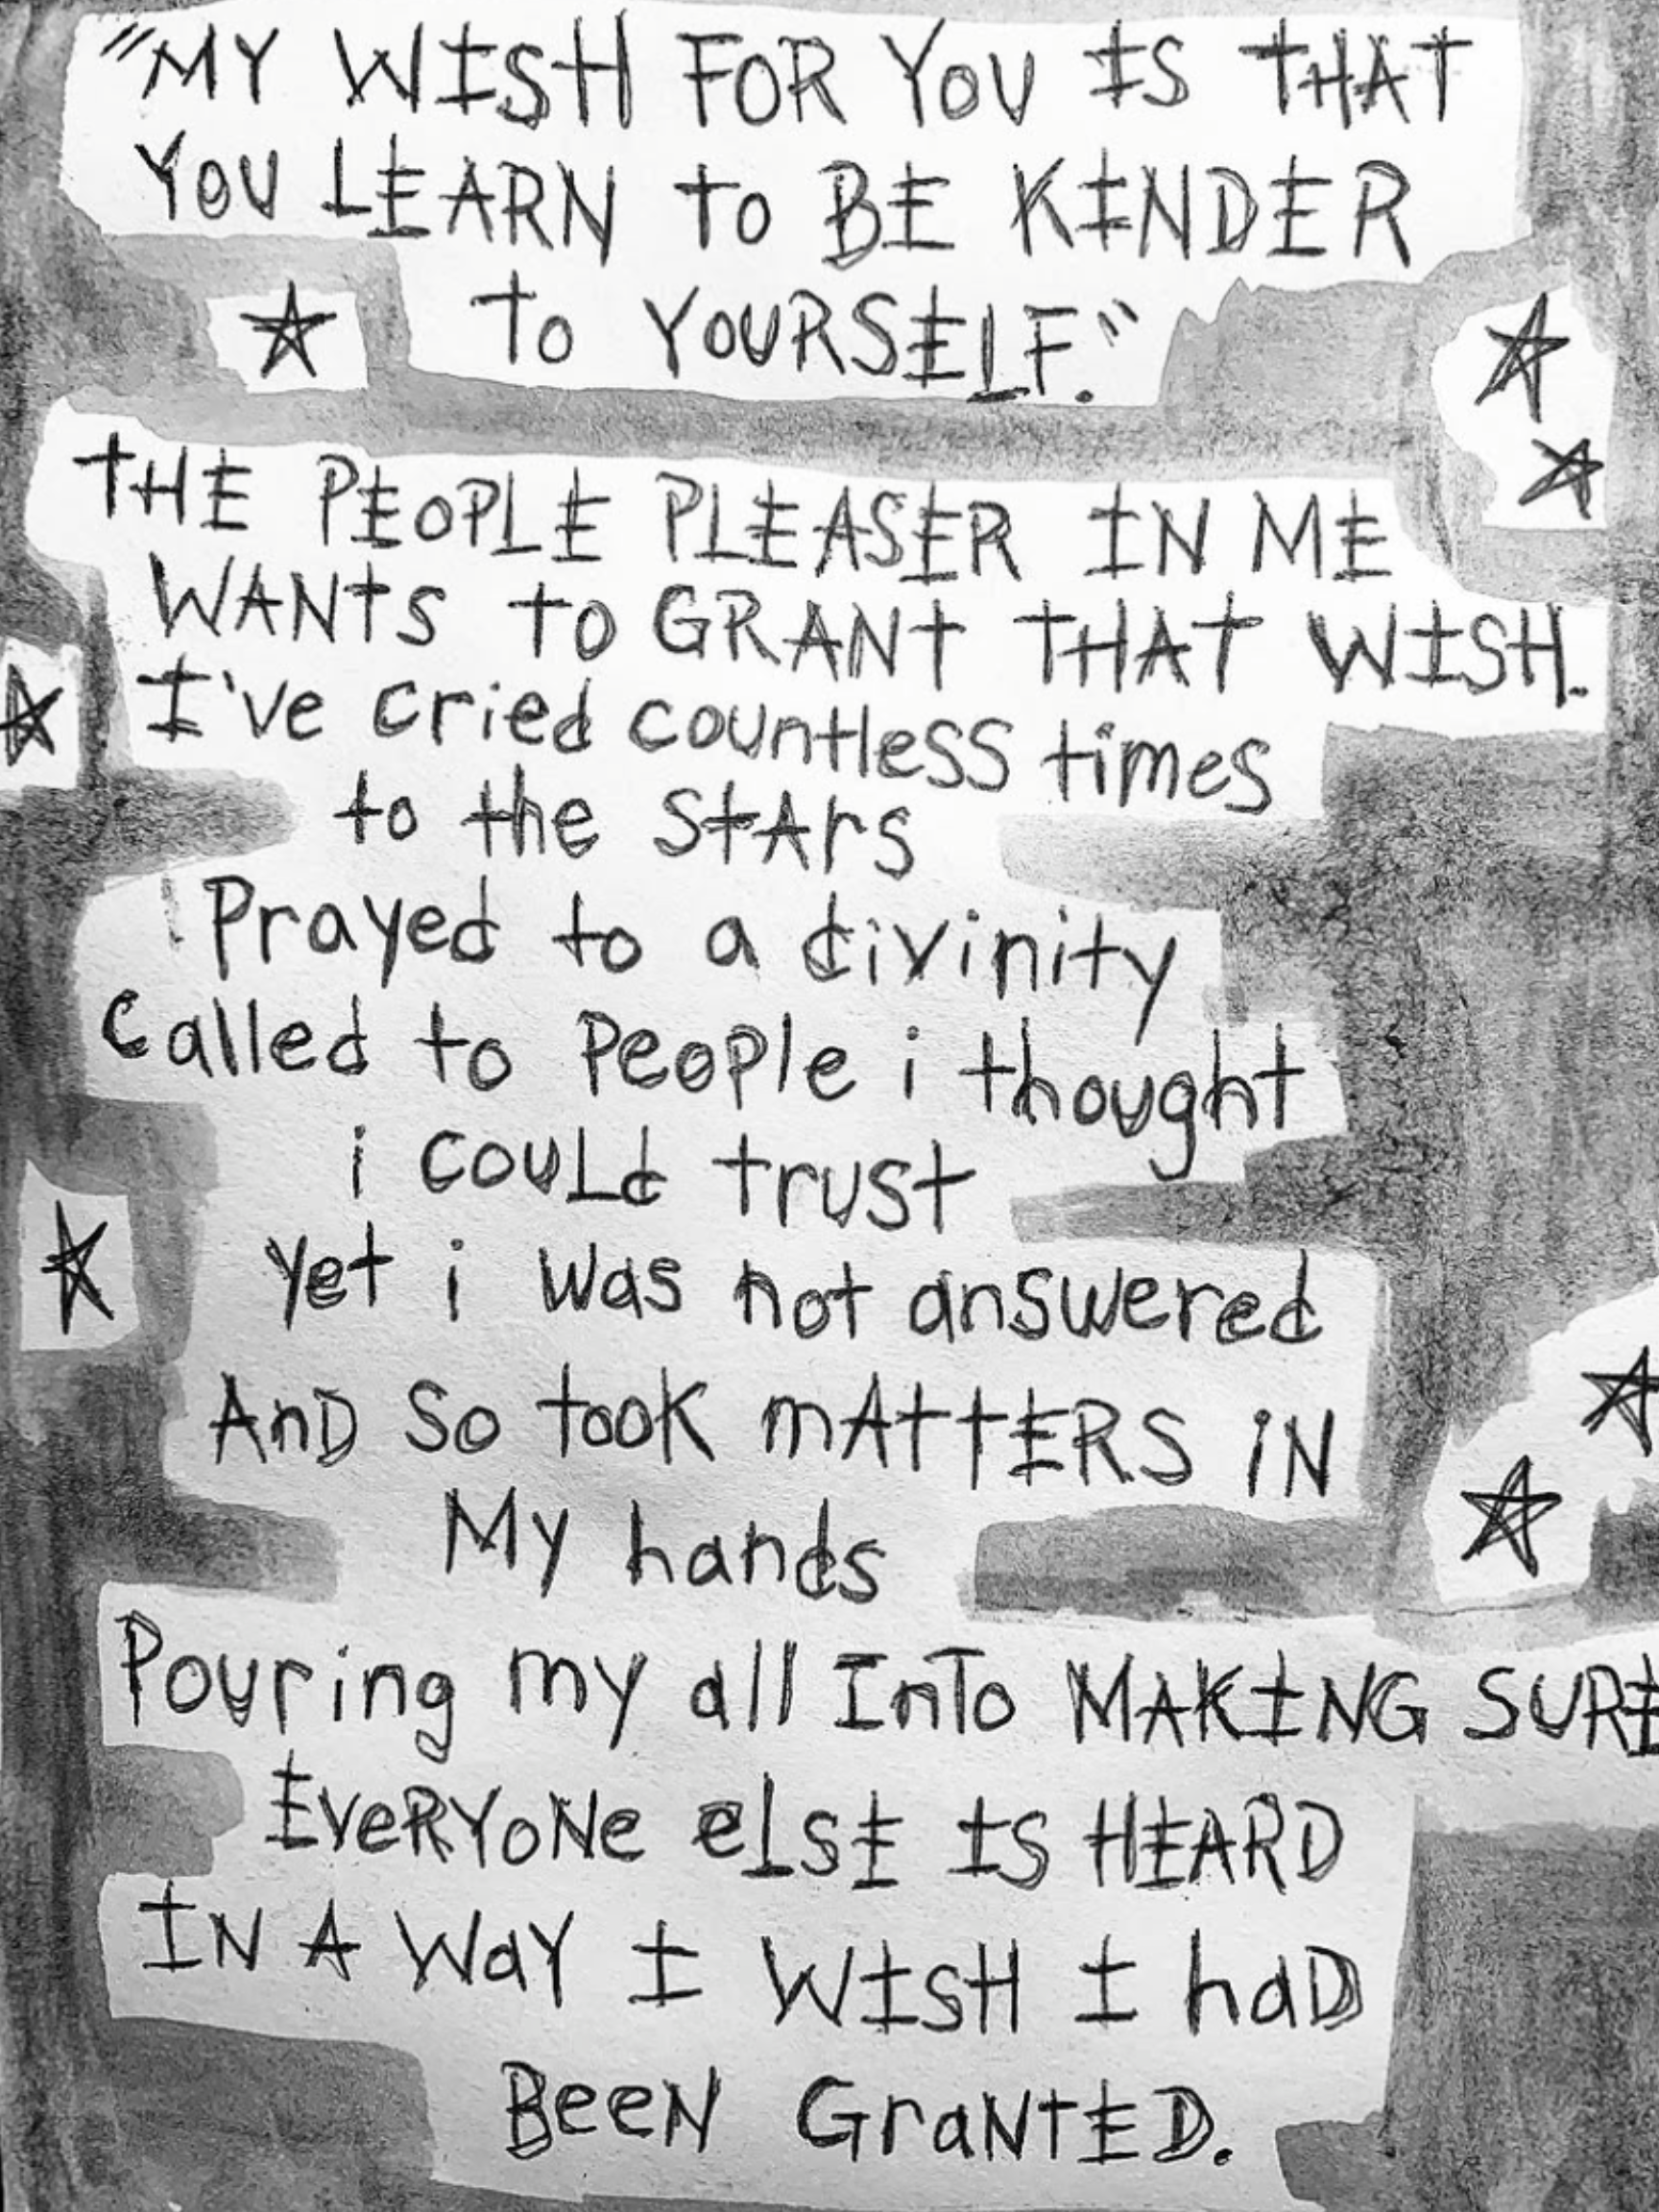 "MY WISH FOR YOU IS THAT
YOU LEARN TO BE KINDER
TO YOURSELF."
THE PEOPLE PLEASER IN ME
WANTS TO GRANT THAT WISH.
I've cried countless times
to the StArs
Prayed to a divinity
called to People i thought
i couLd trust
Yet i was not answered
AnD So tooK mAttERS iN
My hands
Pouring my all InTo MAKING SURE
EVeRYoNe eLSE IS HEARD
IN A WaY I WISH I haD
BeeN GraNtED.